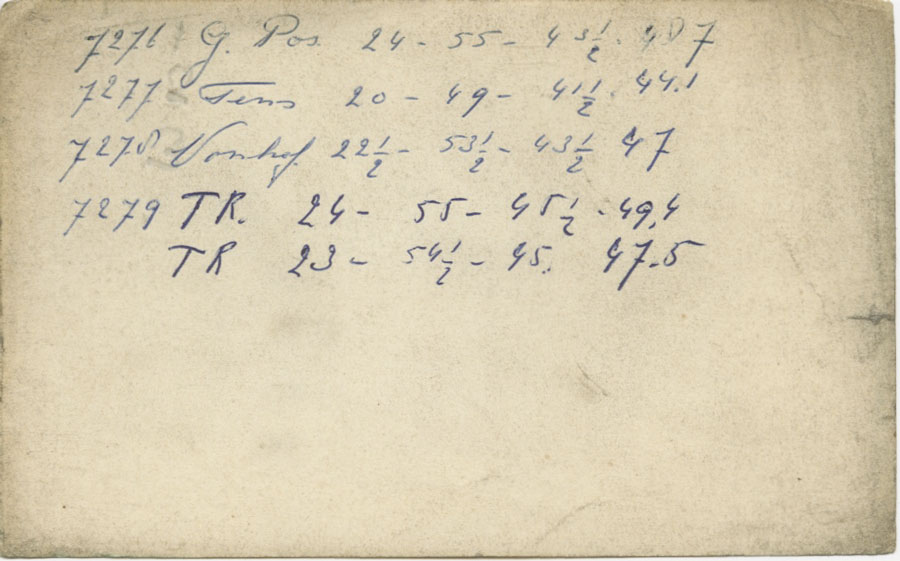 7276 G. Pos 24 - 55 - 43½ · 48 7
7277 Tens 20 - 49 - 41½ · 44.1
7278 22½ - 53½ - 43½ 47
7279 TR. 24 - 55 - 45½ · 49,4
TR 23 - 54½ - 45. 47.5